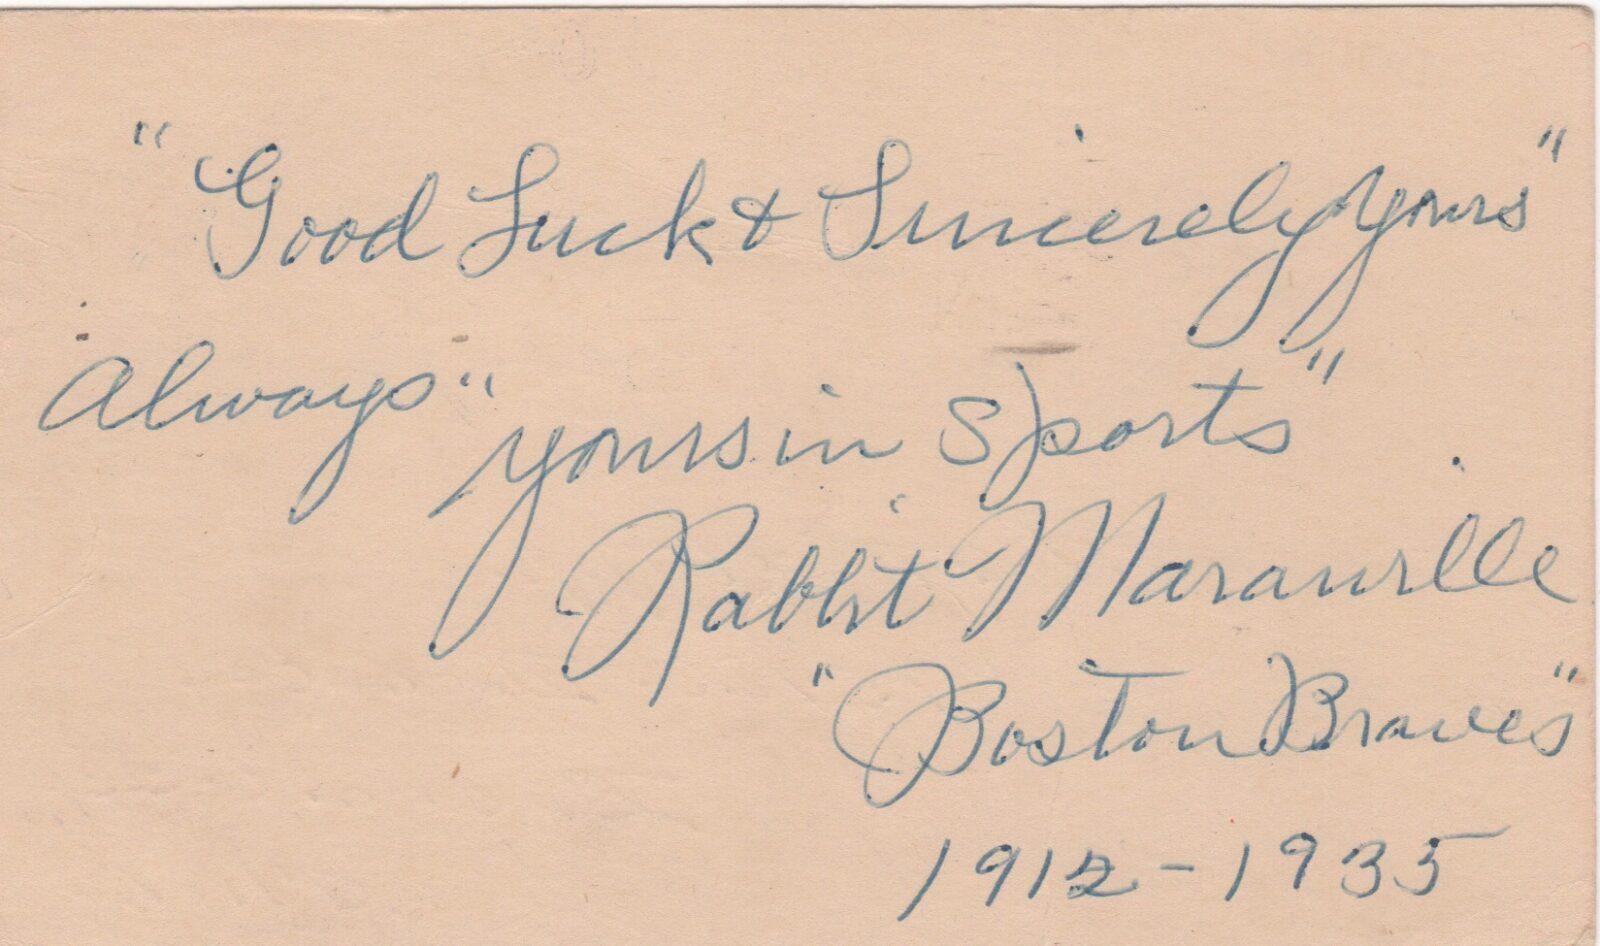 "Good Luck & Sincerely Yours"
Always "yours in Sports"
Rabbit Maranville
"Boston Braves"
1912-1935